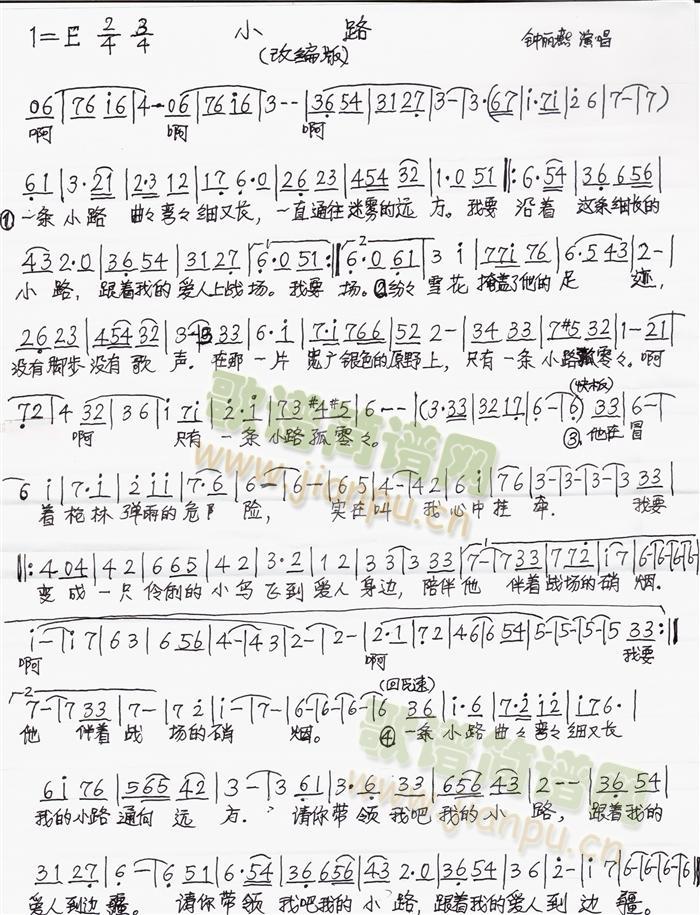 1=E 2/4 3/4 小 路 钟丽燕 演唱
(改编版)
06|76 i6|4-06|76 i6|3--|36 54|31 27|3-|3·(67|i·7i|2 6|7-|7)
啊 啊 啊
61|3·21|2·3 12|17 6·0|26 23|454 32|1·0 51‖:6·54|36 656|
①一条 小路 曲々弯々细又长，一直通往迷雾的远 方。我要 沿着 这条细长的
43 2·0|36 54|31 27|6·0 51:‖6·0 61|3 i|77i 76|6·5 43|2-|
小 路，跟着我的爱人上战场。我要 场。②纷々 雪花 掩盖了他的 足 迹，
26 23|454 32|3-33|6·i|7·i 766|52 2-|34 33|7#5 32|1-21|
没有脚步没有 歌 声．在那一片 宽广银色的原野上，只有一条小路孤零々。啊
(快板)
72|4 32|3 6|i 7i|2·i|73 #4#5|6--|(3·33|32 17|6-|6) 33|6-|
啊 只有 一条 小路孤零々。 ③．他在 冒
6 i|7·i|2 i i|7·6|6-|6-|65|4-|42|6 i|76|3-|3-|3-|3 33|
着枪林弹雨的危险， 实在叫 我心中挂 牵． 我要
‖:4 04|4 2|6 65|4 2|3·2|1 2|3 3|3 33|7-|7 33|772|i7|6-|6-|6-|6-|
变成一只伶俐的小鸟飞到爱人身边，陪伴他 伴着战场的硝 烟．
i-|i 7|6 3|6 56|4-|4 3|2-|2-|2·1|72|46|6 54|5-|5-|5-|5 33:‖
啊 啊 我要
(回民速)
7-|7 33|7-|7 2|i-|7-|6-|6-|6-|6 36|i·6|7·2 i2|i76·|
他 伴着战 场的硝 烟。 ④一条小路曲々弯々细又长
6i 76|565 42|3-|3 61|3·6 33|656 43|2--|36 54|
我的小路通向 远 方． 请你带领 我吧我的小 路，跟着我的
31 27|6-|6 51|6·54|36 656|43 2·0|36 54|3 6|2-|i 7|6-|6-|6-|6|
爱人到边疆。 请你带领 我吧我的小 路，跟着我的爱人到 边 疆。
歌谱简谱网
www.jianpu.cn
歌谱简谱网
www.jianpu.cn